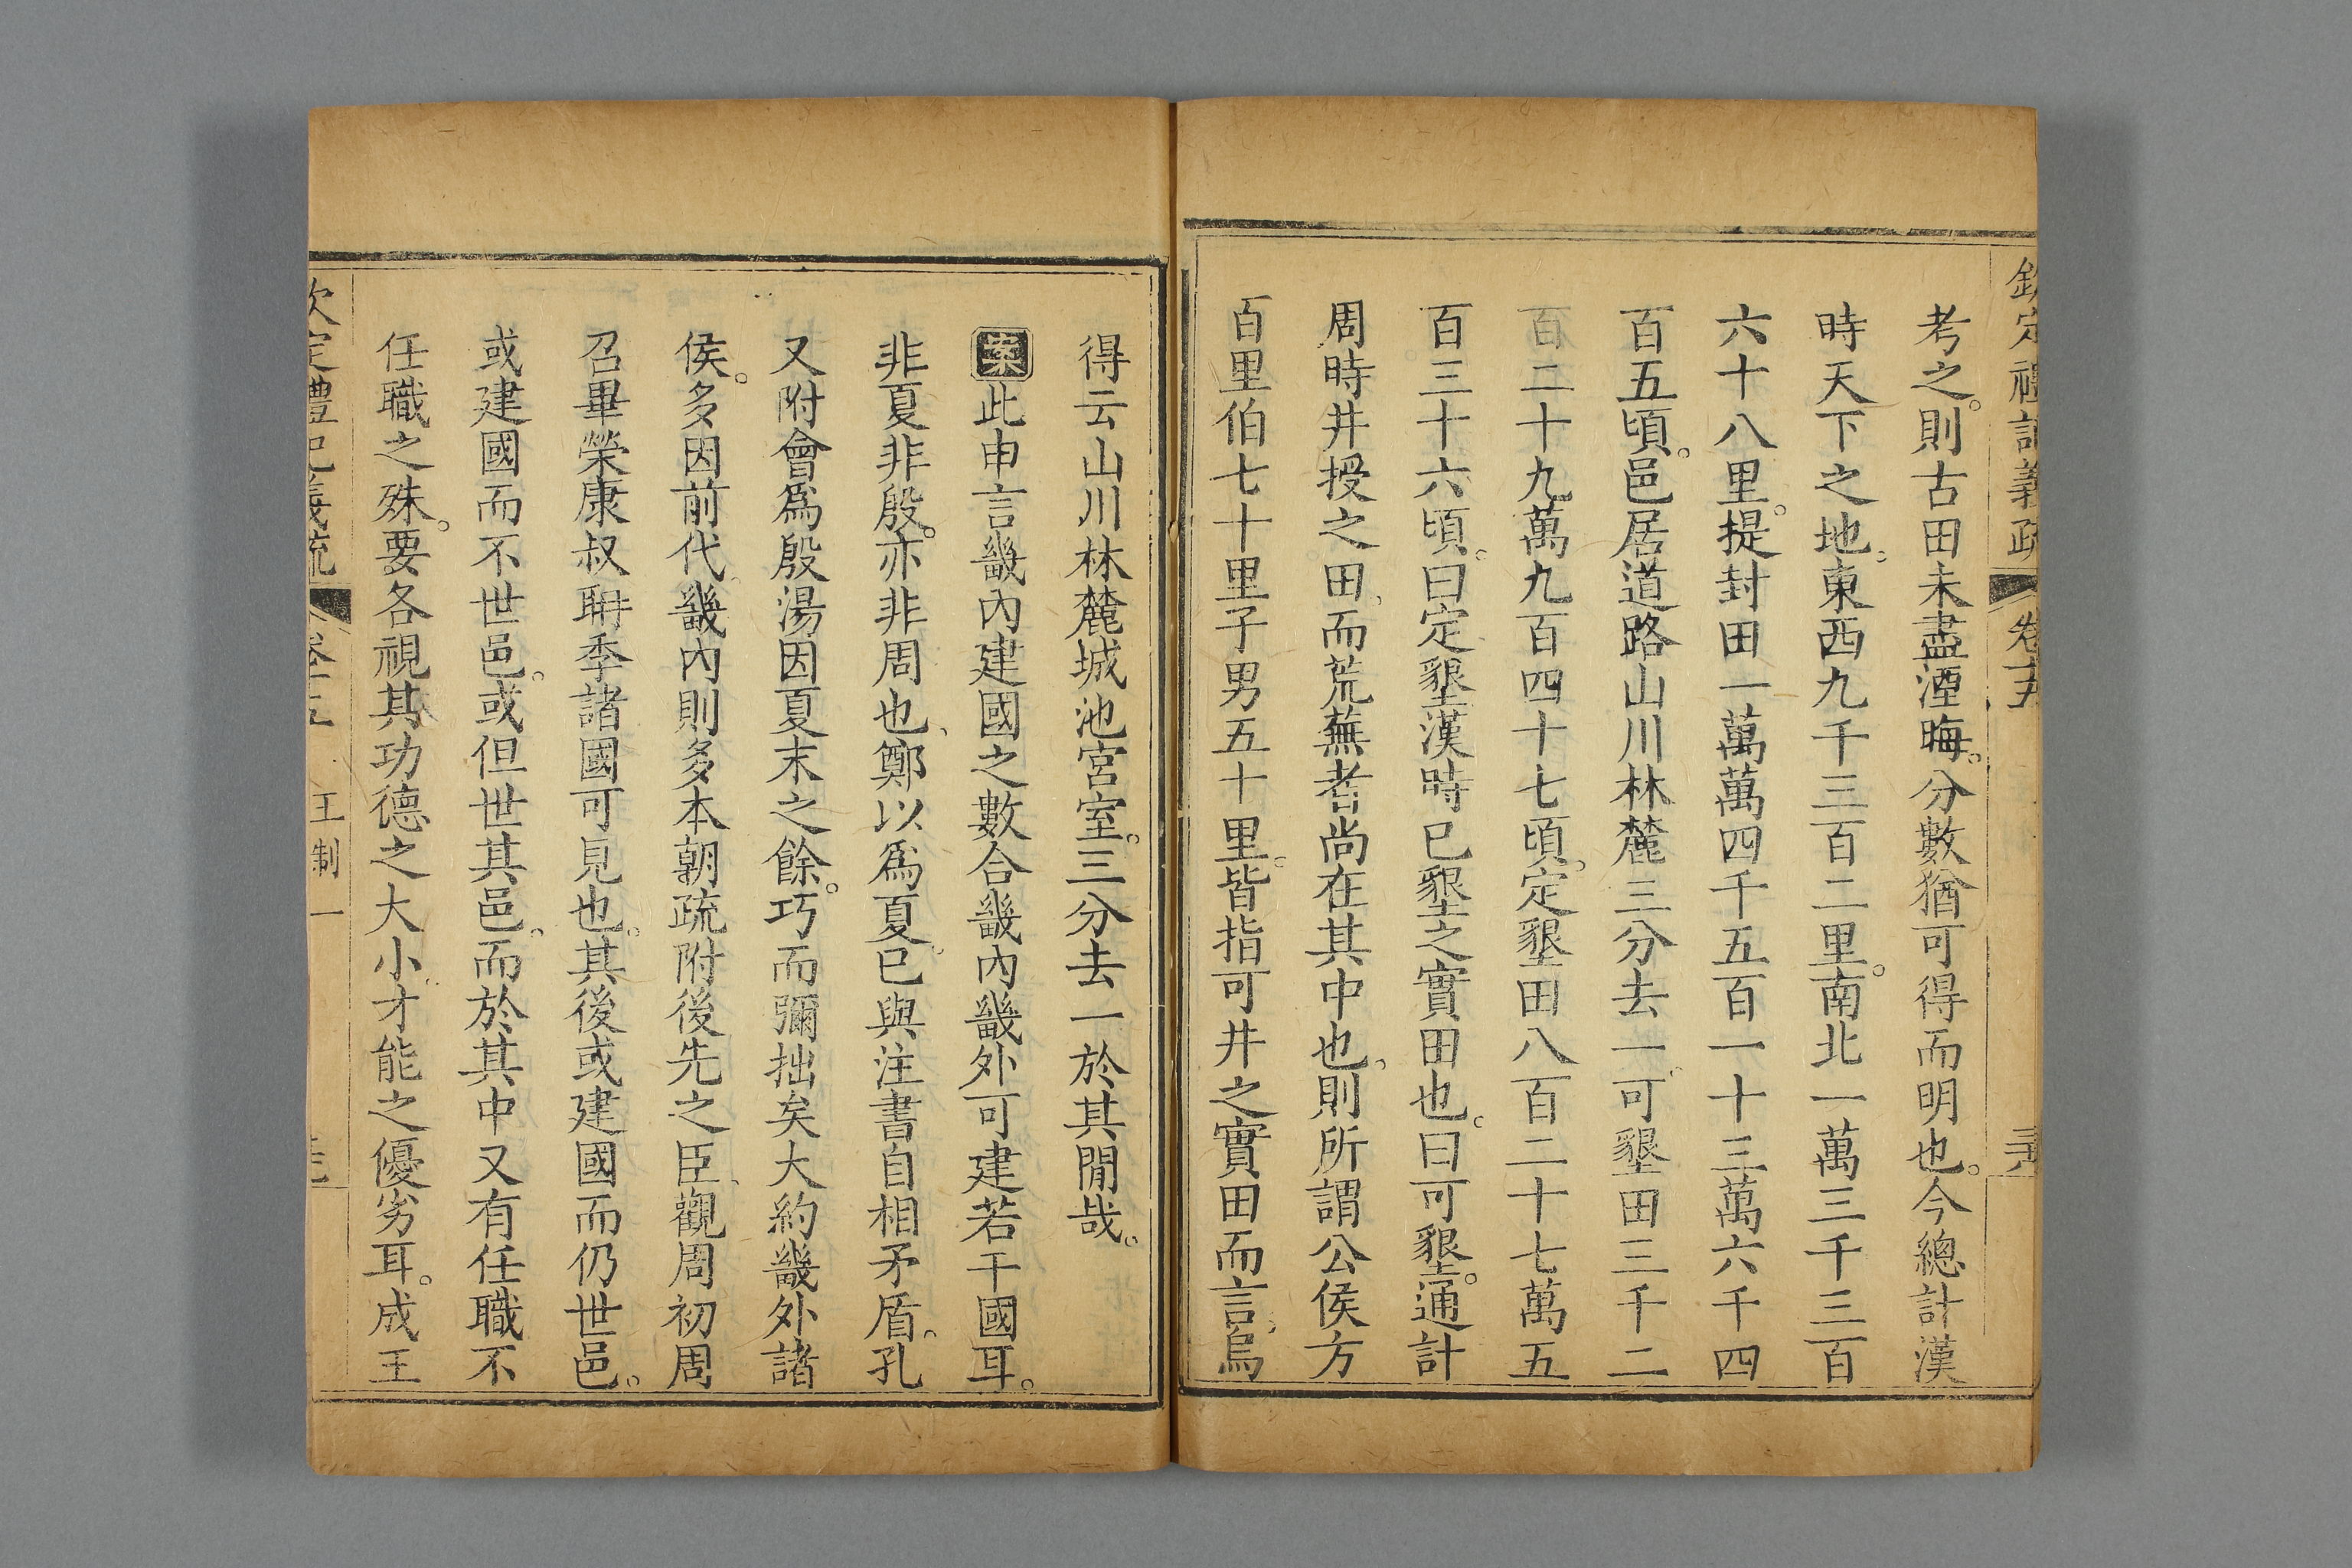 欽定禮記義疏 卷十五
考之。則古田未盡湮晦。分數猶可得而明也。今總計漢
時天下之地。東西九千三百二里。南北一萬三千三百
六十八里。提封田一萬萬四千五百一十三萬六千四
百五頃。邑居道路山川林麓三分去一。可墾田三千二
百二十九萬九百四十七頃。定墾田八百二十七萬五
百三十六頃。曰定墾漢時已墾之實田也。曰可墾。通計
周時井授之田、而荒蕪者尚在其中也。則所謂公侯方
百里伯七十里子男五十里。皆指可井之實田而言。烏
得云山川林麓城池宮室。三分去一於其閒哉。
案此申言畿內建國之數合畿內畿外可建若干國耳。
非夏非殷。亦非周也、鄭以爲夏。已與注書自相矛盾。孔
又附會爲殷湯因夏末之餘。巧而彌拙矣大約畿外諸
侯。多因前代、畿內則多本朝疏附後先之臣、觀周初周
召畢榮康叔聃季諸國可見也。其後或建國而仍世邑。
或建國而不世邑。或但世其邑。而於其中又有任職不
任職之殊。要各視其功德之大小。才能之優劣耳。成王
欽定禮記義疏 卷十五 王制一